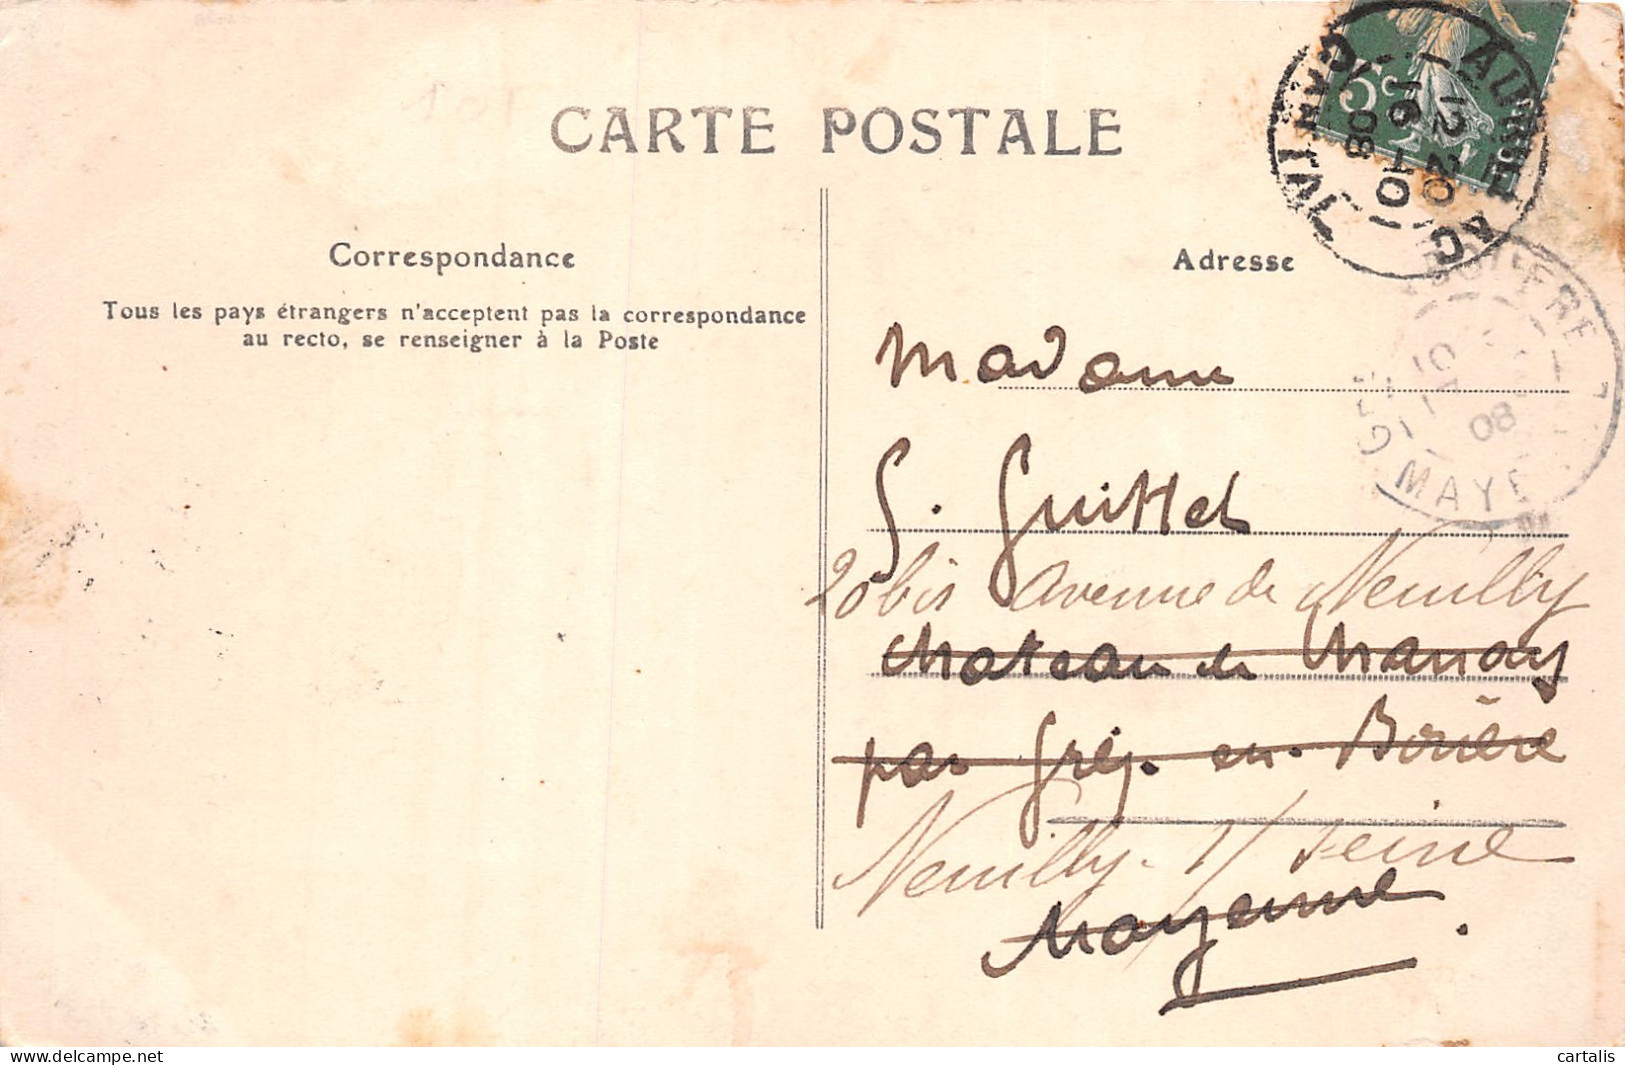 CARTE POSTALE
5c
AURILLAC
CANTAL
12 20
16 -10
08
Correspondance
Adresse
Tous les pays étrangers n'acceptent pas la correspondance
au recto, se renseigner à la Poste
BOUÈRE
08
MAYE
Madame
G. Guittet
20 bis Avenue de Neuilly
chateau de
par Grez. en. Bouère
Neuilly s/ Seine
Mayenne.
cartalis